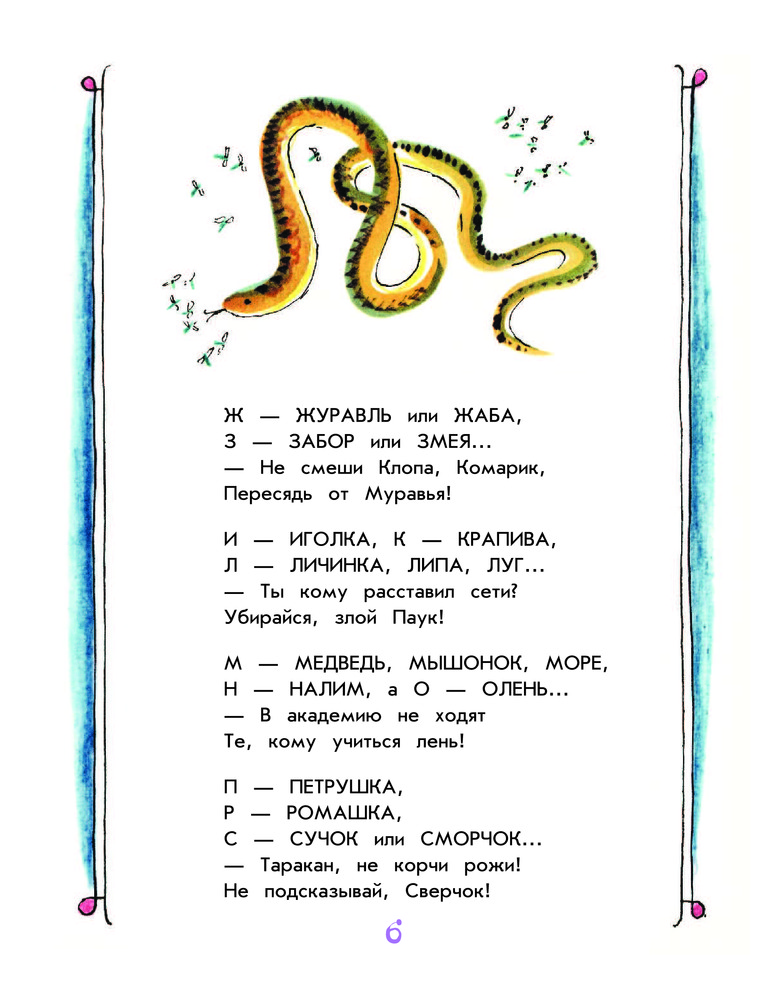 Ж — ЖУРАВЛЬ или ЖАБА,
З — ЗАБОР или ЗМЕЯ...
— Не смеши Клопа, Комарик,
Пересядь от Муравья!
И — ИГОЛКА, К — КРАПИВА,
Л — ЛИЧИНКА, ЛИПА, ЛУГ...
— Ты кому расставил сети?
Убирайся, злой Паук!
М — МЕДВЕДЬ, МЫШОНОК, МОРЕ,
Н — НАЛИМ, а О — ОЛЕНЬ...
— В академию не ходят
Те, кому учиться лень!
П — ПЕТРУШКА,
Р — РОМАШКА,
С — СУЧОК или СМОРЧОК...
— Таракан, не корчи рожи!
Не подсказывай, Сверчок!
6